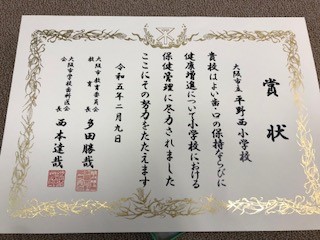 賞状
大阪市立 平野西小学校
貴校はよい歯・口の保持ならびに
健康増進について小学校における
保健管理に尽力されました
ここにその努力をたたえます
令和五年二月九日
大阪市教育委員会
教育長 多田勝哉
大阪市学校歯科医会
会長 西本達哉